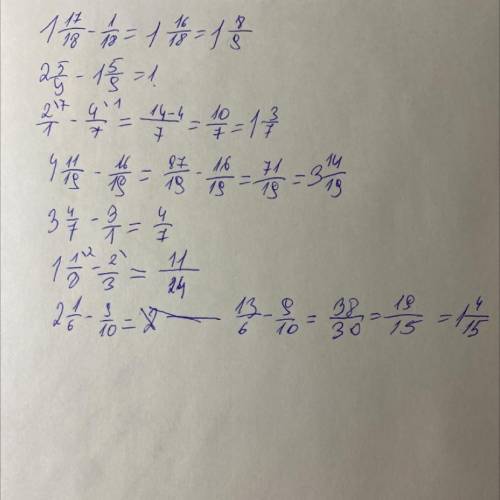 1 17/18 - 1/18 = 1 16/18 = 1 8/9
2 5/9 - 1 5/9 = 1.
2/1 \7 - 4/7 \1 = 14-4/7 = 10/7 = 1 3/7
4 11/19 - 16/19 = 87/19 - 16/19 = 71/19 = 3 14/19
3 4/7 - 3/1 = 4/7
1 1/8 - 2/3 = 11/24
2 1/6 - 9/10 = 13/6 - 9/10 = 38/30 = 19/15 = 1 4/15